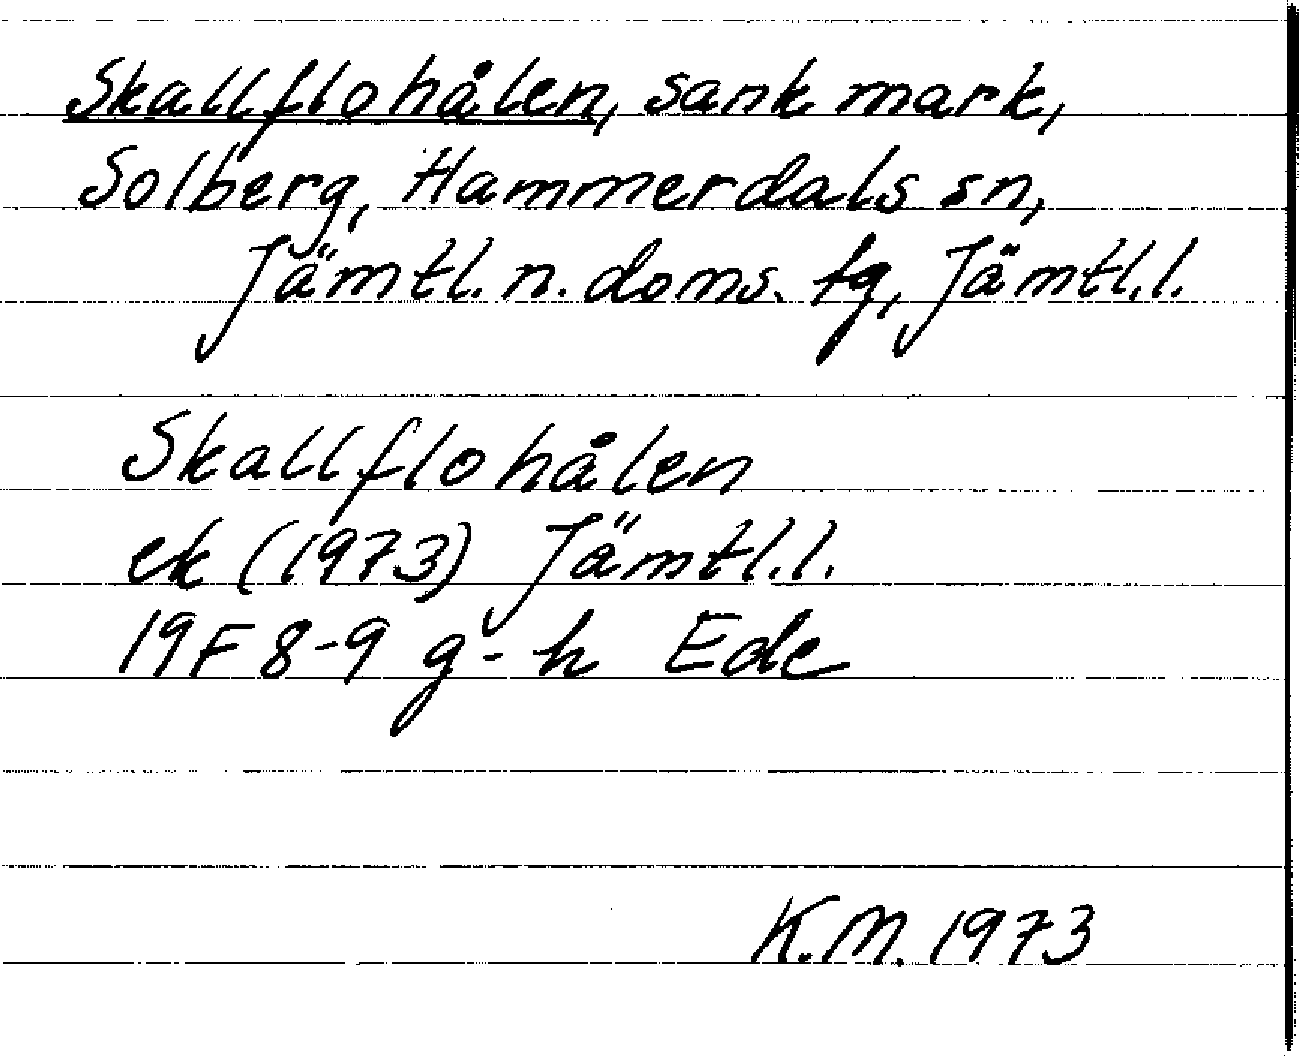 Skallflohålen, sank mark,
Solberg, Hammerdals sn,
Jämtl. n. doms. tg, Jämtl.l.
Skallflohålen
ek (1973) Jämtl.l.
19F 8-9 g-h Ede
K.M. 1973